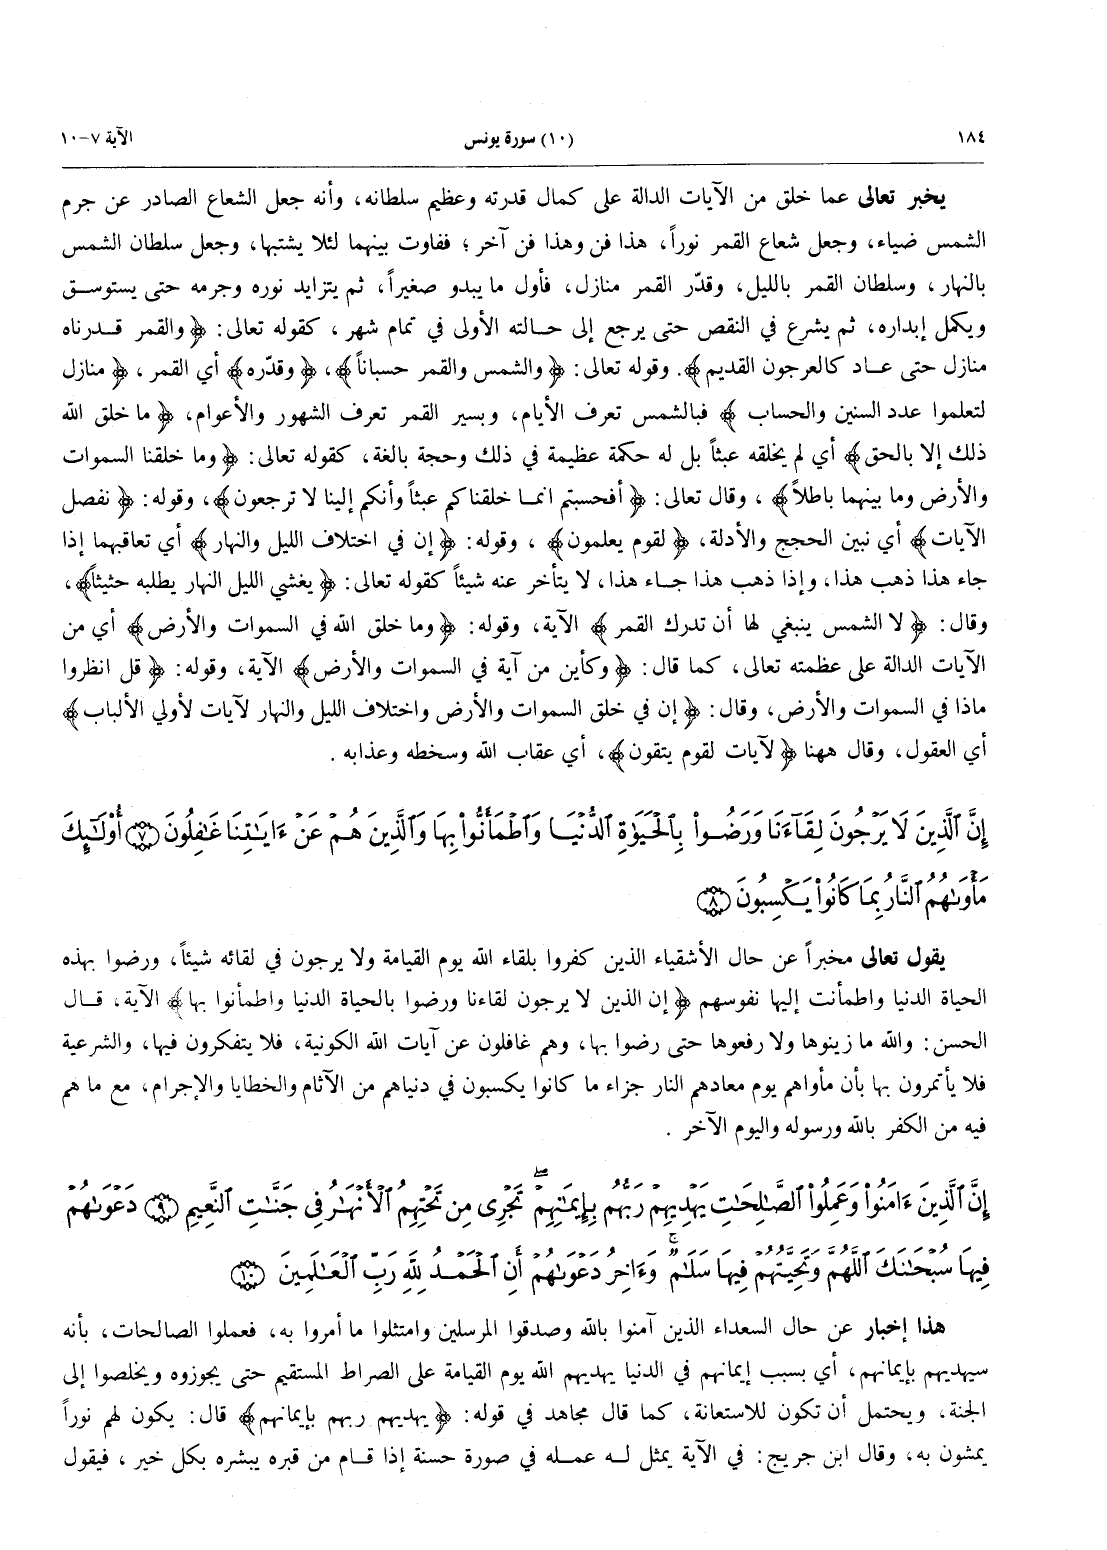 ١٨٤ (١٠) سورة يونس الآية ٧-١٠
يخبر تعالى عما خلق من الآيات الدالة على كمال قدرته وعظيم سلطانه، وأنه جعل الشعاع الصادر عن جرم
الشمس ضياء، وجعل شعاع القمر نوراً، هذا فن وهذا فن آخر؛ ففاوت بينهما لئلا يشتبها، وجعل سلطان الشمس
بالنهار، وسلطان القمر بالليل، وقدّر القمر منازل، فأول ما يبدو صغيراً، ثم يتزايد نوره وجرمه حتى يستوسق
ويكمل إبداره، ثم يشرع في النقص حتى يرجع إلى حالته الأولى في تمام شهر، كقوله تعالى: ﴿والقمر قدرناه
منازل حتى عاد كالعرجون القديم﴾. وقوله تعالى: ﴿والشمس والقمر حسباناً﴾، ﴿وقدّره﴾ أي القمر، ﴿منازل
لتعلموا عدد السنين والحساب﴾ فبالشمس تعرف الأيام، وبسير القمر تعرف الشهور والأعوام، ﴿ما خلق الله
ذلك إلا بالحق﴾ أي لم يخلقه عبثاً بل له حكمة عظيمة في ذلك وحجة بالغة، كقوله تعالى: ﴿وما خلقنا السموات
والأرض وما بينهما باطلاً﴾، وقال تعالى: ﴿أفحسبتم انما خلقناكم عبثاً وأنكم إلينا لا ترجعون﴾، وقوله: ﴿نفصل
الآيات﴾ أي نبين الحجج والأدلة، ﴿لقوم يعلمون﴾، وقوله: ﴿إن في اختلاف الليل والنهار﴾ أي تعاقبهما إذا
جاء هذا ذهب هذا، وإذا ذهب هذا جاء هذا، لا يتأخر عنه شيئاً كقوله تعالى: ﴿يغشي الليل النهار يطلبه حثيثاً﴾،
وقال: ﴿لا الشمس ينبغي لها أن تدرك القمر﴾ الآية، وقوله: ﴿وما خلق الله في السموات والأرض﴾ أي من
الآيات الدالة على عظمته تعالى، كما قال: ﴿وكأين من آية في السموات والأرض﴾ الآية، وقوله: ﴿قل انظروا
ماذا في السموات والأرض، وقال: ﴿إن في خلق السموات والأرض واختلاف الليل والنهار لآيات لأولي الألباب﴾
أي العقول، وقال ههنا ﴿لآيات لقوم يتقون﴾، أي عقاب الله وسخطه وعذابه.
إِنَّ ٱلَّذِينَ لَا يَرْجُونَ لِقَآءَنَا وَرَضُوا۟ بِٱلْحَيَوٰةِ ٱلدُّنْيَا وَٱطْمَأَنُّوا۟ بِهَا وَٱلَّذِينَ هُمْ عَنْ ءَايَـٰتِنَا غَـٰفِلُونَ ﴿٧﴾ أُو۟لَـٰٓئِكَ
مَأْوَىٰهُمُ ٱلنَّارُ بِمَا كَانُوا۟ يَكْسِبُونَ ﴿٨﴾
يقول تعالى مخبراً عن حال الأشقياء الذين كفروا بلقاء الله يوم القيامة ولا يرجون في لقائه شيئاً، ورضوا بهذه
الحياة الدنيا واطمأنت إليها نفوسهم ﴿إن الذين لا يرجون لقاءنا ورضوا بالحياة الدنيا واطمأنوا بها﴾ الآية، قال
الحسن: والله ما زينوها ولا رفعوها حتى رضوا بها، وهم غافلون عن آيات الله الكونية، فلا يتفكرون فيها، والشرعية
فلا يأتمرون بها بأن مأواهم يوم معادهم النار جزاء ما كانوا يكسبون في دنياهم من الآثام والخطايا والإجرام، مع ما هم
فيه من الكفر بالله ورسوله واليوم الآخر.
إِنَّ ٱلَّذِينَ ءَامَنُوا۟ وَعَمِلُوا۟ ٱلصَّـٰلِحَـٰتِ يَهْدِيهِمْ رَبُّهُم بِإِيمَـٰنِهِمْ ۖ تَجْرِى مِن تَحْتِهِمُ ٱلْأَنْهَـٰرُ فِى جَنَّـٰتِ ٱلنَّعِيمِ ﴿٩﴾ دَعْوَىٰهُمْ
فِيهَا سُبْحَـٰنَكَ ٱللَّهُمَّ وَتَحِيَّتُهُمْ فِيهَا سَلَـٰمٌ ۚ وَءَاخِرُ دَعْوَىٰهُمْ أَنِ ٱلْحَمْدُ لِلَّهِ رَبِّ ٱلْعَـٰلَمِينَ ﴿١٠﴾
هذا إخبار عن حال السعداء الذين آمنوا بالله وصدقوا المرسلين وامتثلوا ما أمروا به، فعملوا الصالحات، بأنه
سيهديهم بإيمانهم، أي بسبب إيمانهم في الدنيا يهديهم الله يوم القيامة على الصراط المستقيم حتى يجوزوه ويخلصوا إلى
الجنة، ويحتمل أن تكون للاستعانة، كما قال مجاهد في قوله: ﴿يهديهم ربهم بإيمانهم﴾ قال: يكون لهم نوراً
يمشون به، وقال ابن جريج: في الآية يمثل له عمله في صورة حسنة إذا قام من قبره يبشره بكل خير، فيقول